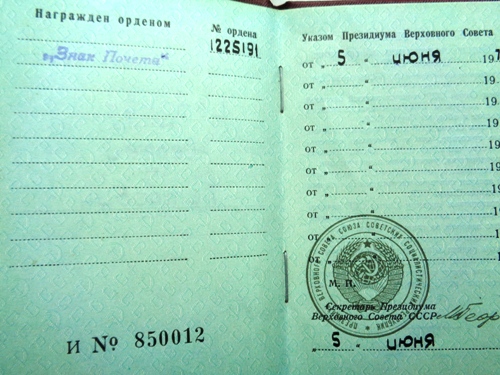 Награжден орденом
№ ордена
„Знак Почета"
1225191
И № 850012
Указом Президиума Верховного Совета
от „ 5 " июня 197
от „ " 19
от „ " 19
от „ " 19
от „ " 19
от „ " 19
от „ " 19
от „ " 19
от „ " 19
от
ПРЕЗИДИУМ ВЕРХОВНОГО СОВЕТА СОЮЗА СОВЕТСКИХ СОЦИАЛИСТИЧЕСКИХ РЕСПУБЛИК
М. П.
Секретарь Президиума
Верховного Совета СССР
„ 5 " июня